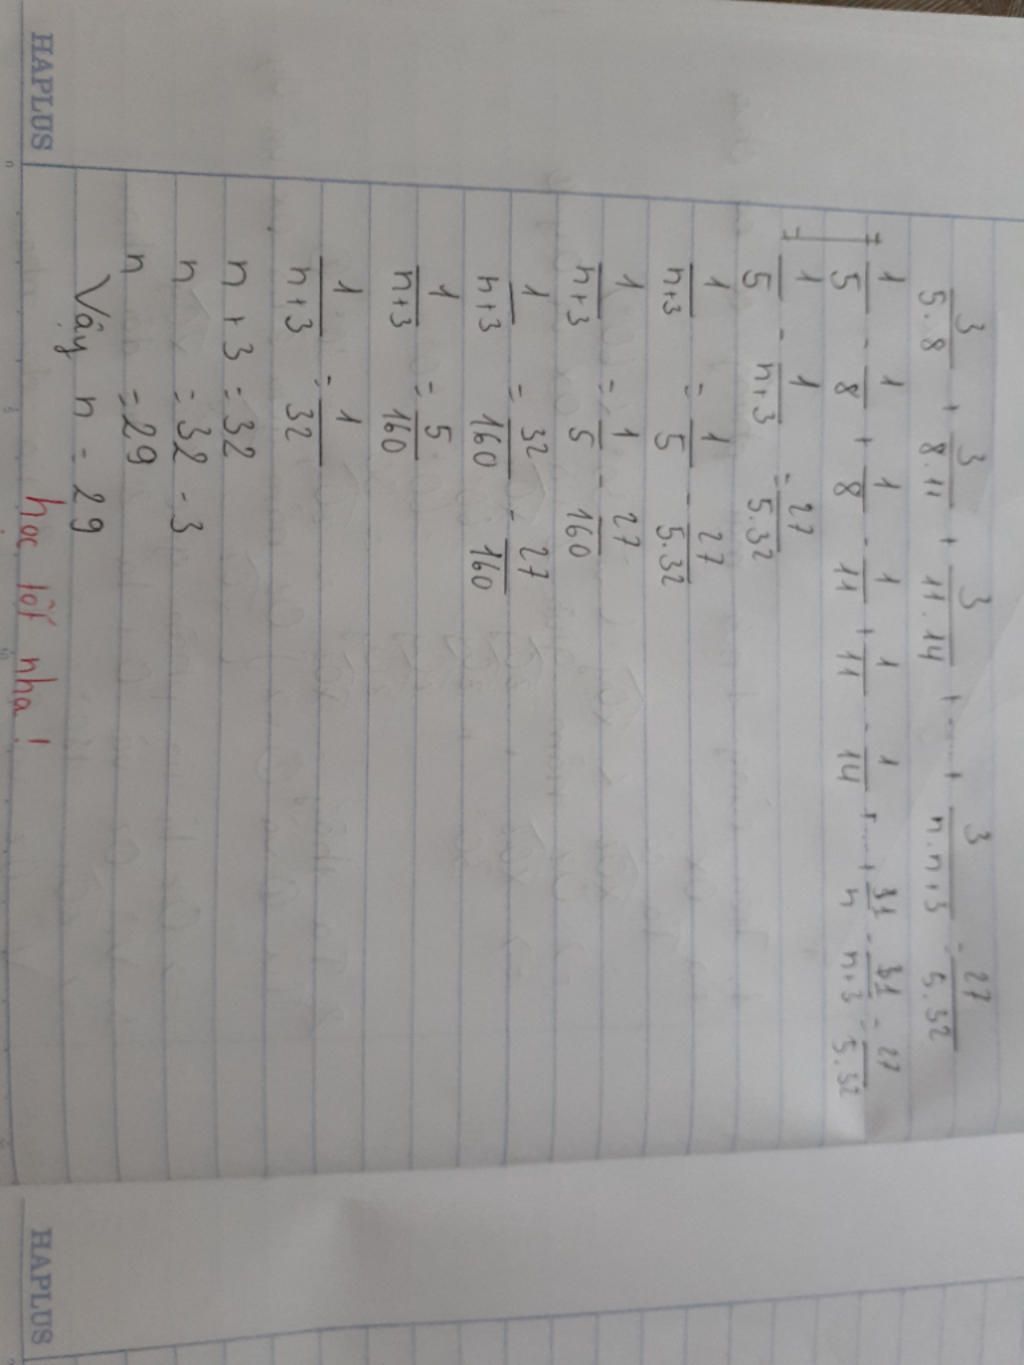 3/5.8 + 3/8.11 + 3/11.14 + ... + 3/n.n+3 = 27/5.32
= 1/5 - 1/8 + 1/8 - 1/11 + 1/11 - 1/14 + ... + 1/n - 1/n+3 = 27/5.32
= 1/5 - 1/n+3 = 27/5.32
1/n+3 = 1/5 - 27/5.32
1/n+3 = 1/5 - 27/160
1/n+3 = 32/160 - 27/160
1/n+3 = 5/160
1/n+3 = 1/32
n + 3 = 32
n = 32 - 3
n = 29
Vậy n = 29
học tốt nha!
HAPLUS
HAPLUS